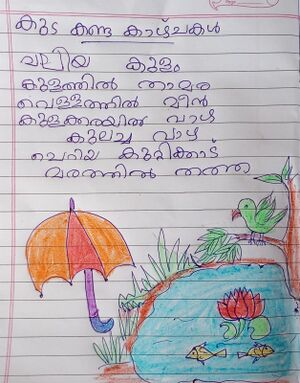 കുട കണ്ട കാഴ്ചകൾ
വലിയ കുളം
കുളത്തിൽ താമര
വെള്ളത്തിൽ മീൻ
കുളക്കരയിൽ വാഴ
കുലച്ച വാഴ
ചെറിയ കുറ്റിക്കാട്
മരത്തിൽ തത്ത